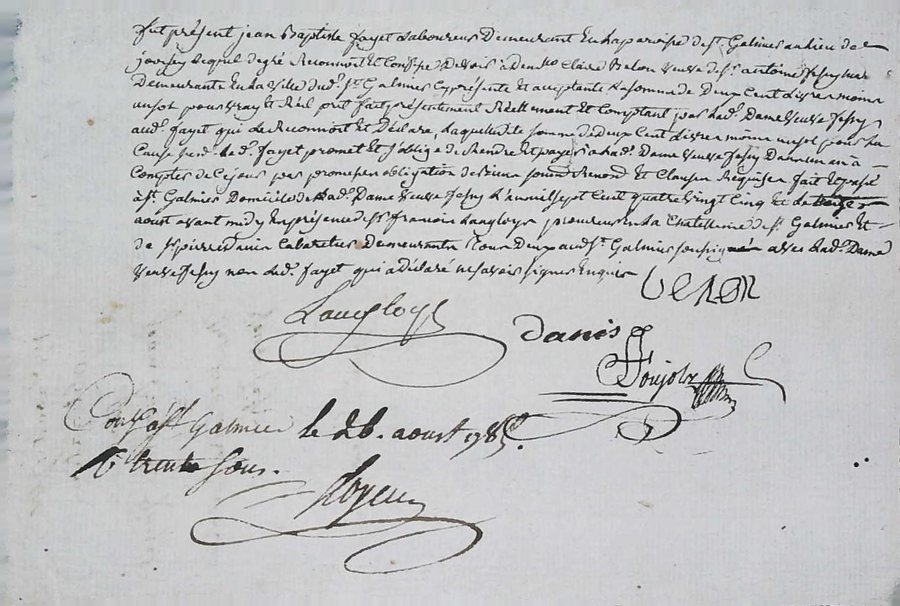 fut présent jean Baptiste fayet Laboureur Demeurant En la paroisse de st. Galmier au lieu de
jovssey Lequel de gré Reconnoit et Confesse Devoir à demlle Claire Bebon veuve de sr. antoine
Demeurante En la ville dud. st Galmier cy présente et acceptante La somme de Deux Cent livres moins
un sol pour vray et Réel prêt fait présentement Réellement Et Comptant par lad. Dame veuve
aud. fayet qui Le Reconnoit Et Déclare, Laquelle de somme de deux Cent livres moins un sol pour la
Cause led. fayet promet Et s'oblige de Rendre Et payer a lad. Dame veuve Dans un an à
Compter de Ce jour par promesse obligation de Biens soumis Renond Et Clauses Requises fait Et passé
à st. Galmier Domicile de lad. Dame veuve L'an mil sept cent quatre vingt Cinq Et Le treize
aoust avant midy En présence de sr françois Langloys procureur En la Chatellenie de st. Galmier Et
de sr pierre Danis Cabaretier Demeurants Tous Deux aud. st. Galmier soussignés avec lad. Dame
veuve non led. fayet qui a déclaré ne savoir signer Enquis
Langloys
Danis
Ponjolz
Con.lé à st Galmier le 26. aoust 1785.
R trente sous.